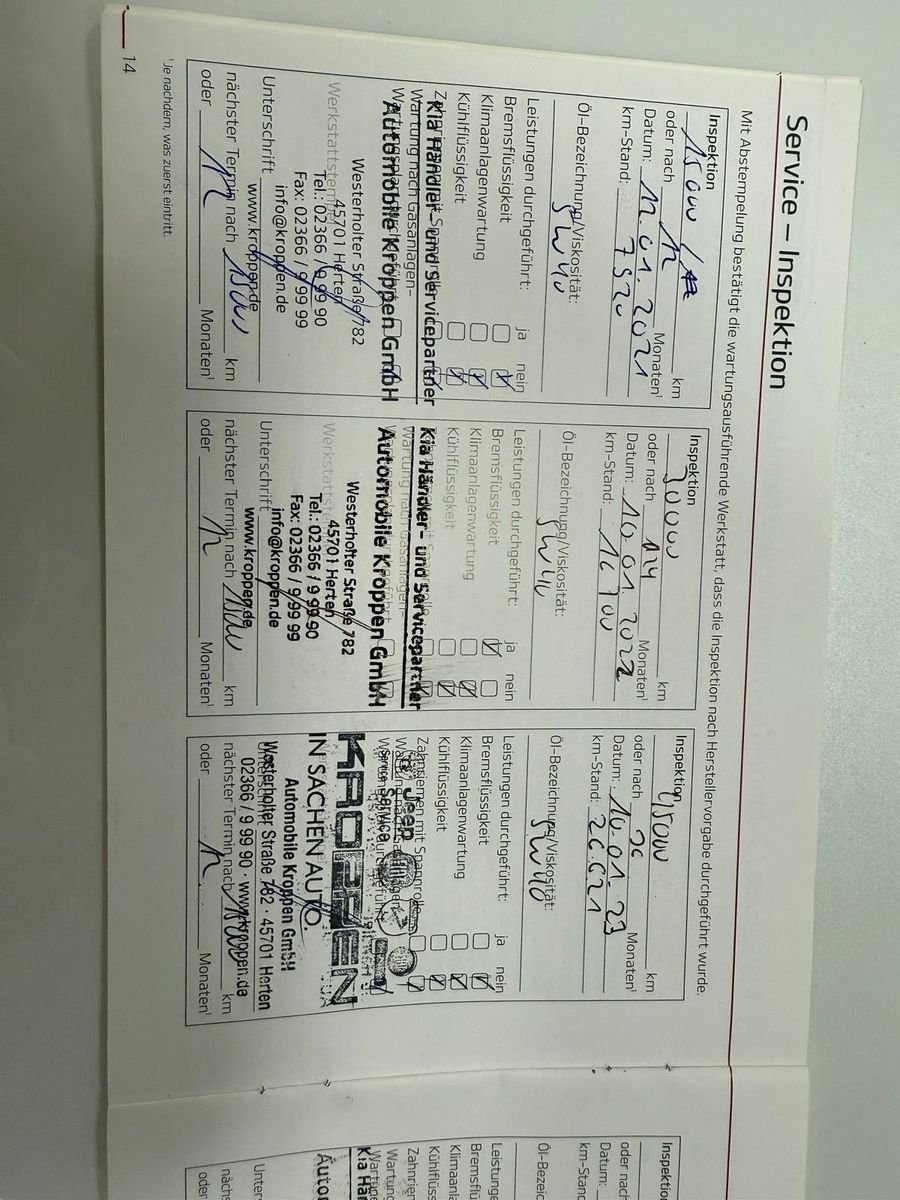 Service – Inspektion
Mit Abstempelung bestätigt die wartungsausführende Werkstatt, dass die Inspektion nach Herstellervorgabe durchgeführt wurde.
Inspektion
15000 km
oder nach 12 Monaten¹
Datum: 11.01.2021
km-Stand: 7920
Öl-Bezeichnung/Viskosität:
5W40
Leistungen durchgeführt: ja nein
Bremsflüssigkeit
Klimaanlagenwartung
Kühlflüssigkeit
Wartung nach Gasanlagen-
Kia Händler- und Servicepartner
Automobile Kroppen GmbH
Westerholter Straße 782
45701 Herten
Tel.: 02366 / 9 99 90
Fax: 02366 / 9 99 99
info@kroppen.de
www.kroppen.de
Werkstattstempel
Unterschrift
nächster Termin nach km
oder 12 Monaten¹
Inspektion
30000 km
oder nach 24 Monaten¹
Datum: 10.01.2022
km-Stand: 16700
Öl-Bezeichnung/Viskosität:
5W40
Leistungen durchgeführt: ja nein
Bremsflüssigkeit
Klimaanlagenwartung
Kühlflüssigkeit
Kia Händler- und Servicepartner
Automobile Kroppen GmbH
Westerholter Straße 782
45701 Herten
Tel.: 02366 / 9 99 90
Fax: 02366 / 9 99 99
info@kroppen.de
www.kroppen.de
Unterschrift
nächster Termin nach km
oder 12 Monaten¹
Inspektion
45000 km
oder nach 36 Monaten¹
Datum: 10.01.23
km-Stand: 26.621
Öl-Bezeichnung/Viskosität:
5W40
Leistungen durchgeführt: ja nein
Bremsflüssigkeit
Klimaanlagenwartung
Kühlflüssigkeit
Zahnriemen mit Spannrolle
Jeep
Service
KROPPEN
IN SACHEN AUTO.
Automobile Kroppen GmbH
Westerholter Straße 782 · 45701 Herten
02366 / 9 99 90 · www.kroppen.de
nächster Termin nach km
oder 12 Monaten¹
¹Je nachdem, was zuerst eintritt.
14
Inspektion
oder nach
Datum:
km-Stand
Öl-Bezeic
Leistunge
Bremsflü
Klimaanl
Kühlflüss
Zahnrier
Wartung
Kia Hä
Autor
Unters
nächs
oder